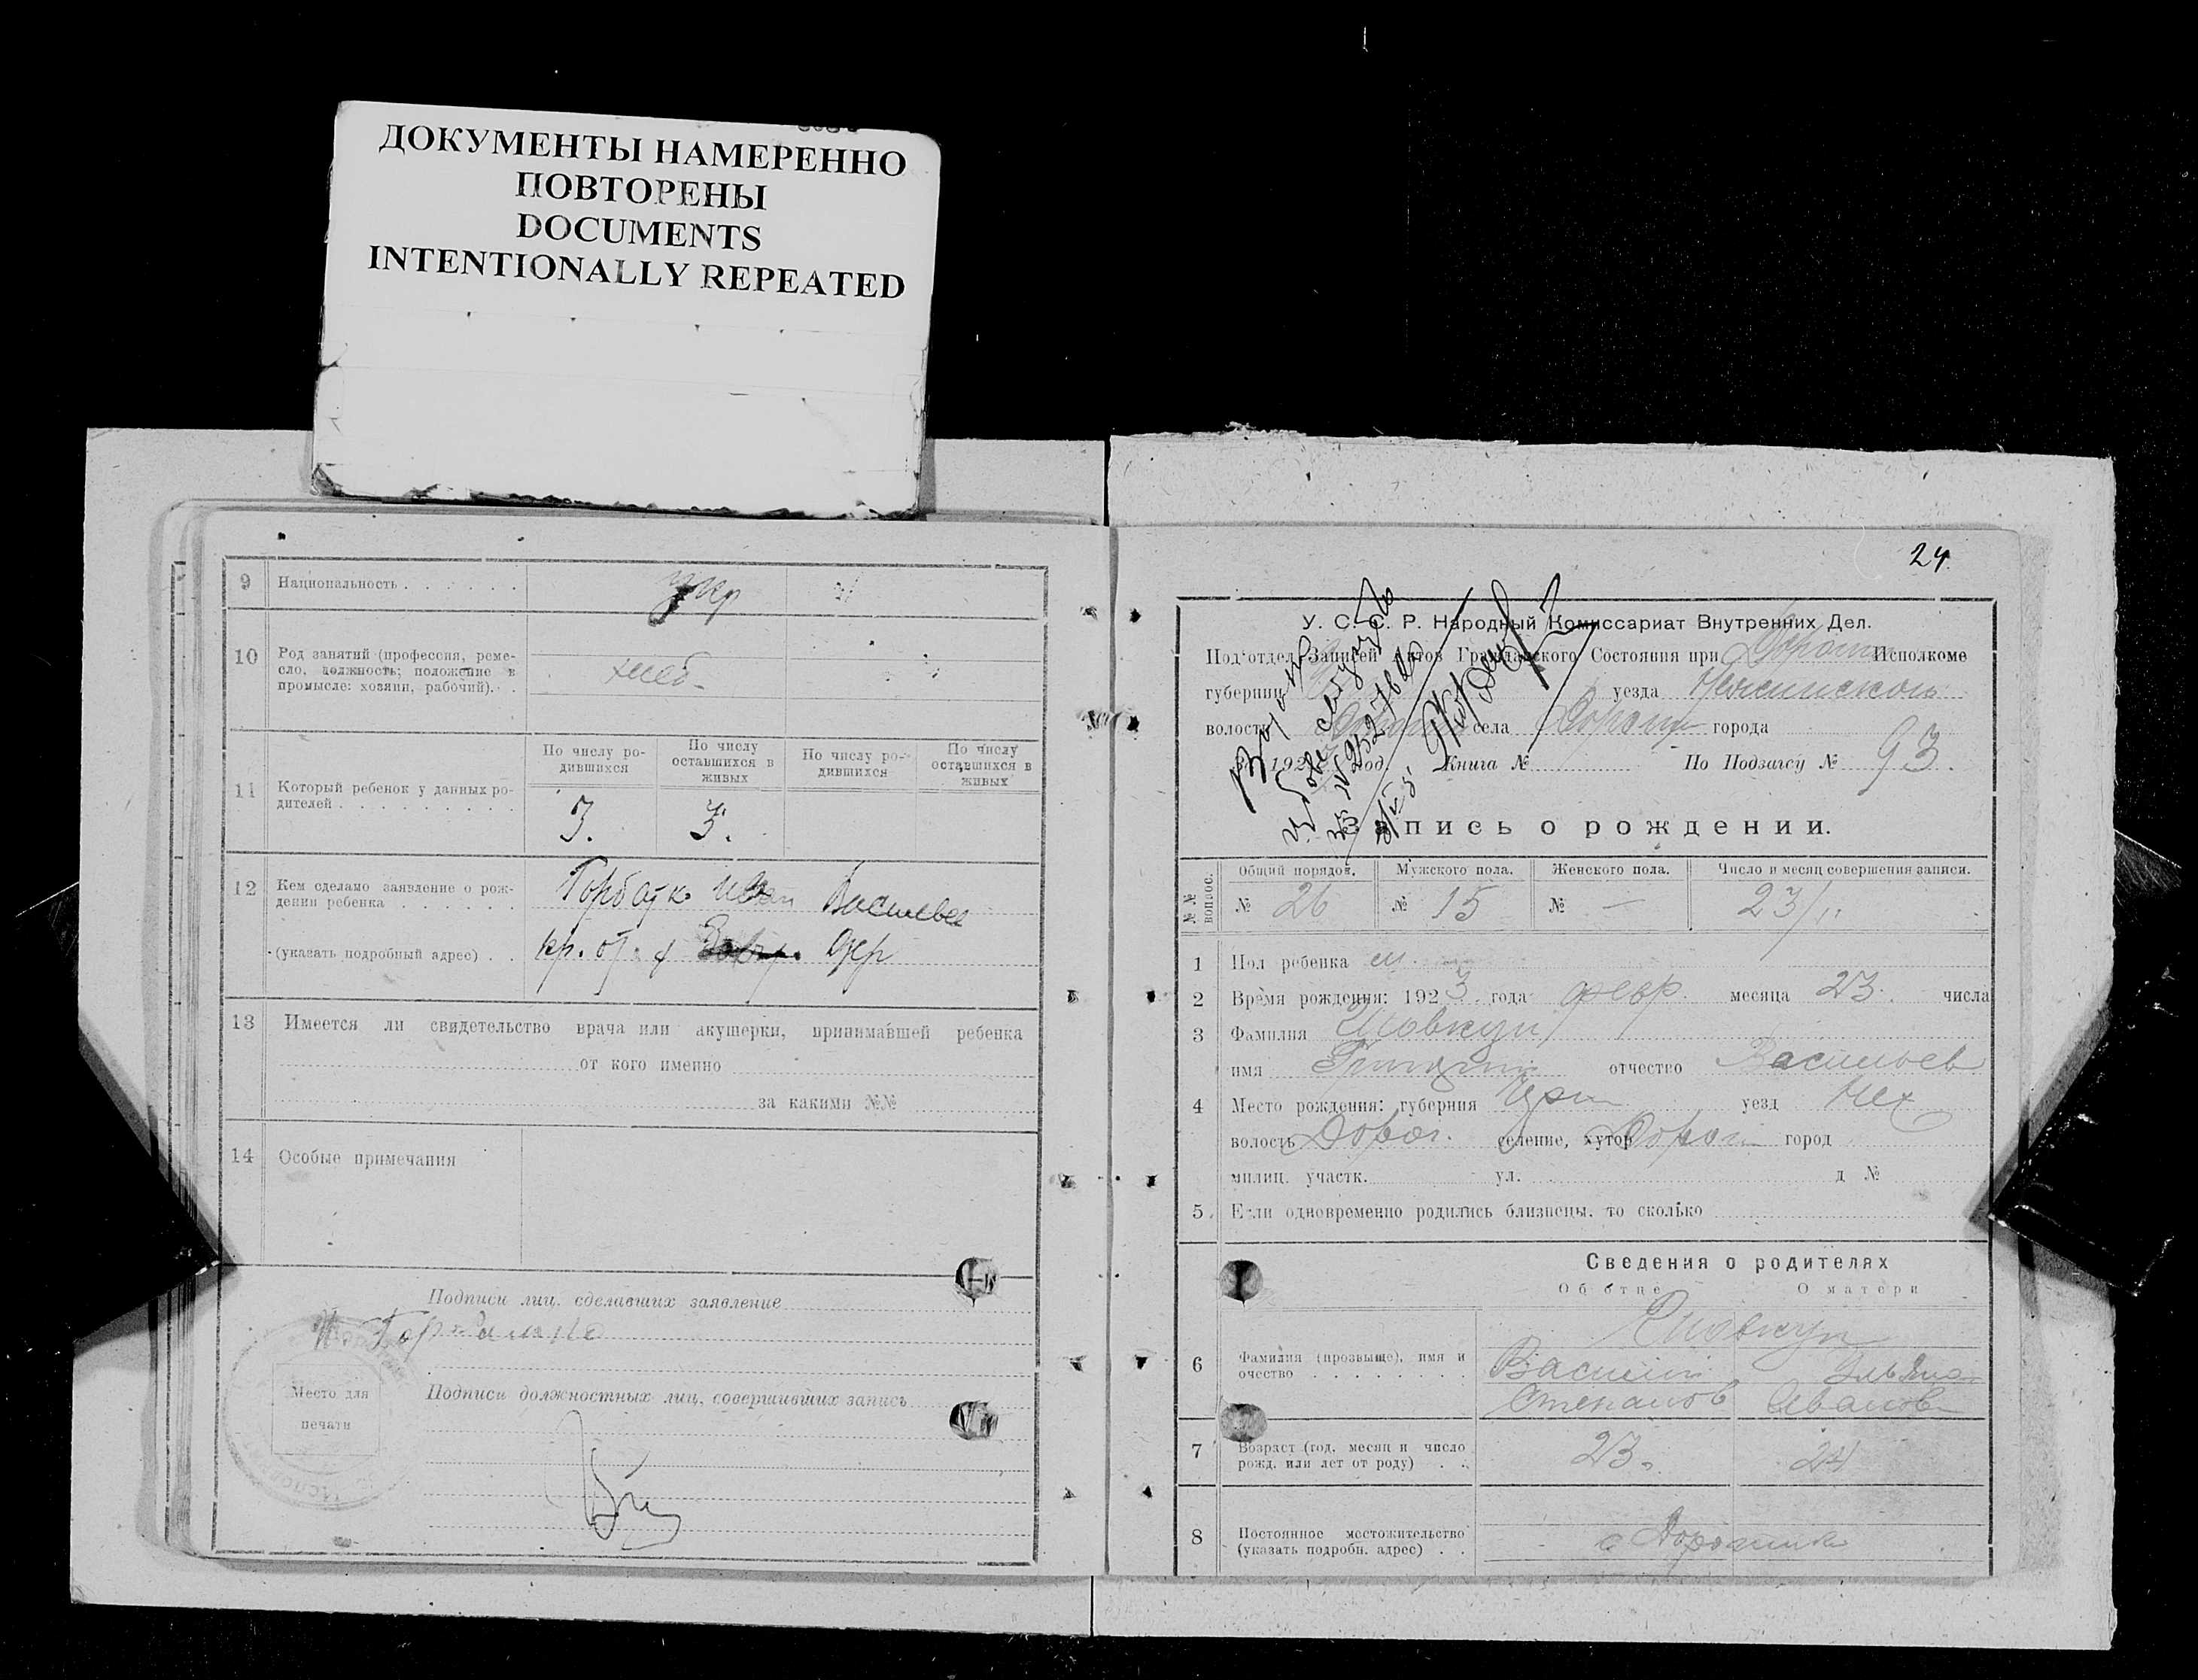 ДОКУМЕНТЫ НАМЕРЕННО
ПОВТОРЕНЫ
DOCUMENTS
INTENTIONALLY REPEATED
9 Национальность укр
10 Род занятий (профессия, реме-
сло, должность; положение в
промысле: хозяин, рабочий). хлеб-
По числу ро-
дившихся
По числу
оставшихся в
живых
По числу ро-
дившихся
По числу
оставшихся в
живых
11 Который ребенок у данных ро-
дителей 3. 3.
12 Кем сделамо заявление о рож-
дении ребенка Горбатко Иван Васильев
(указать подробный адрес) кр.
13 Имеется ли свидетельство врача или акушерки, принимавшей ребенка
от кого именно
за какими №№
14 Особые примечания
Подписи лиц, сделавших заявление
Место для
печати
Подписи должностных лиц, совершивших запись
24
У. С. С. Р. Народный Комиссариат Внутренних Дел.
Подотдел Записей Актов Гражданского Состояния при Исполкоме
губернии уезда Нежинского
волости села города
192 год Книга № По Подзагсу № 93.
Запись о рождении.
№№ вопрос.
Общий порядок. Мужского пола. Женского пола. Число и месяц совершения записи.
№ 26 № 15 № — 23/II
1 Пол ребенка м
2 Время рождения: 1923 года февр. месяца 23 числа
3 Фамилия Шовкун
имя Григорий отчество Васильев
4 Место рождения: губерния Черн уезд Неж
волость Дорог. селение, хутор Дорог город
милиц. участк. ул. д №
5. Если одновременно родились близнецы, то сколько
Сведения о родителях
Об отце О матери
Шовкун
6 Фамилия (прозвыще), имя и Василий Ульяна
очество Степанов Иванов
7 Возраст (год, месяц и число
рожд. или лет от роду) 23. 24
8 Постоянное местожительство
(указать подробн. адрес) с